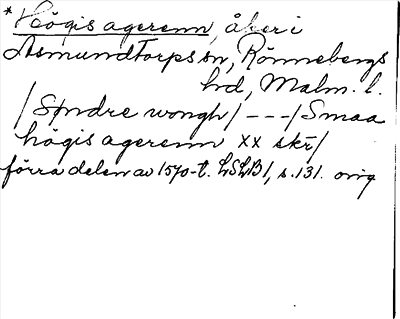 *Högis agerenn, åker i
Asmundtorps sn, Rönnebergs
hd, Malm. l.
/Søndre wongh/ ---/Smaa
högis agerenn xx skr/
förra delen av 1570-t. LSLB1, s. 131. orig